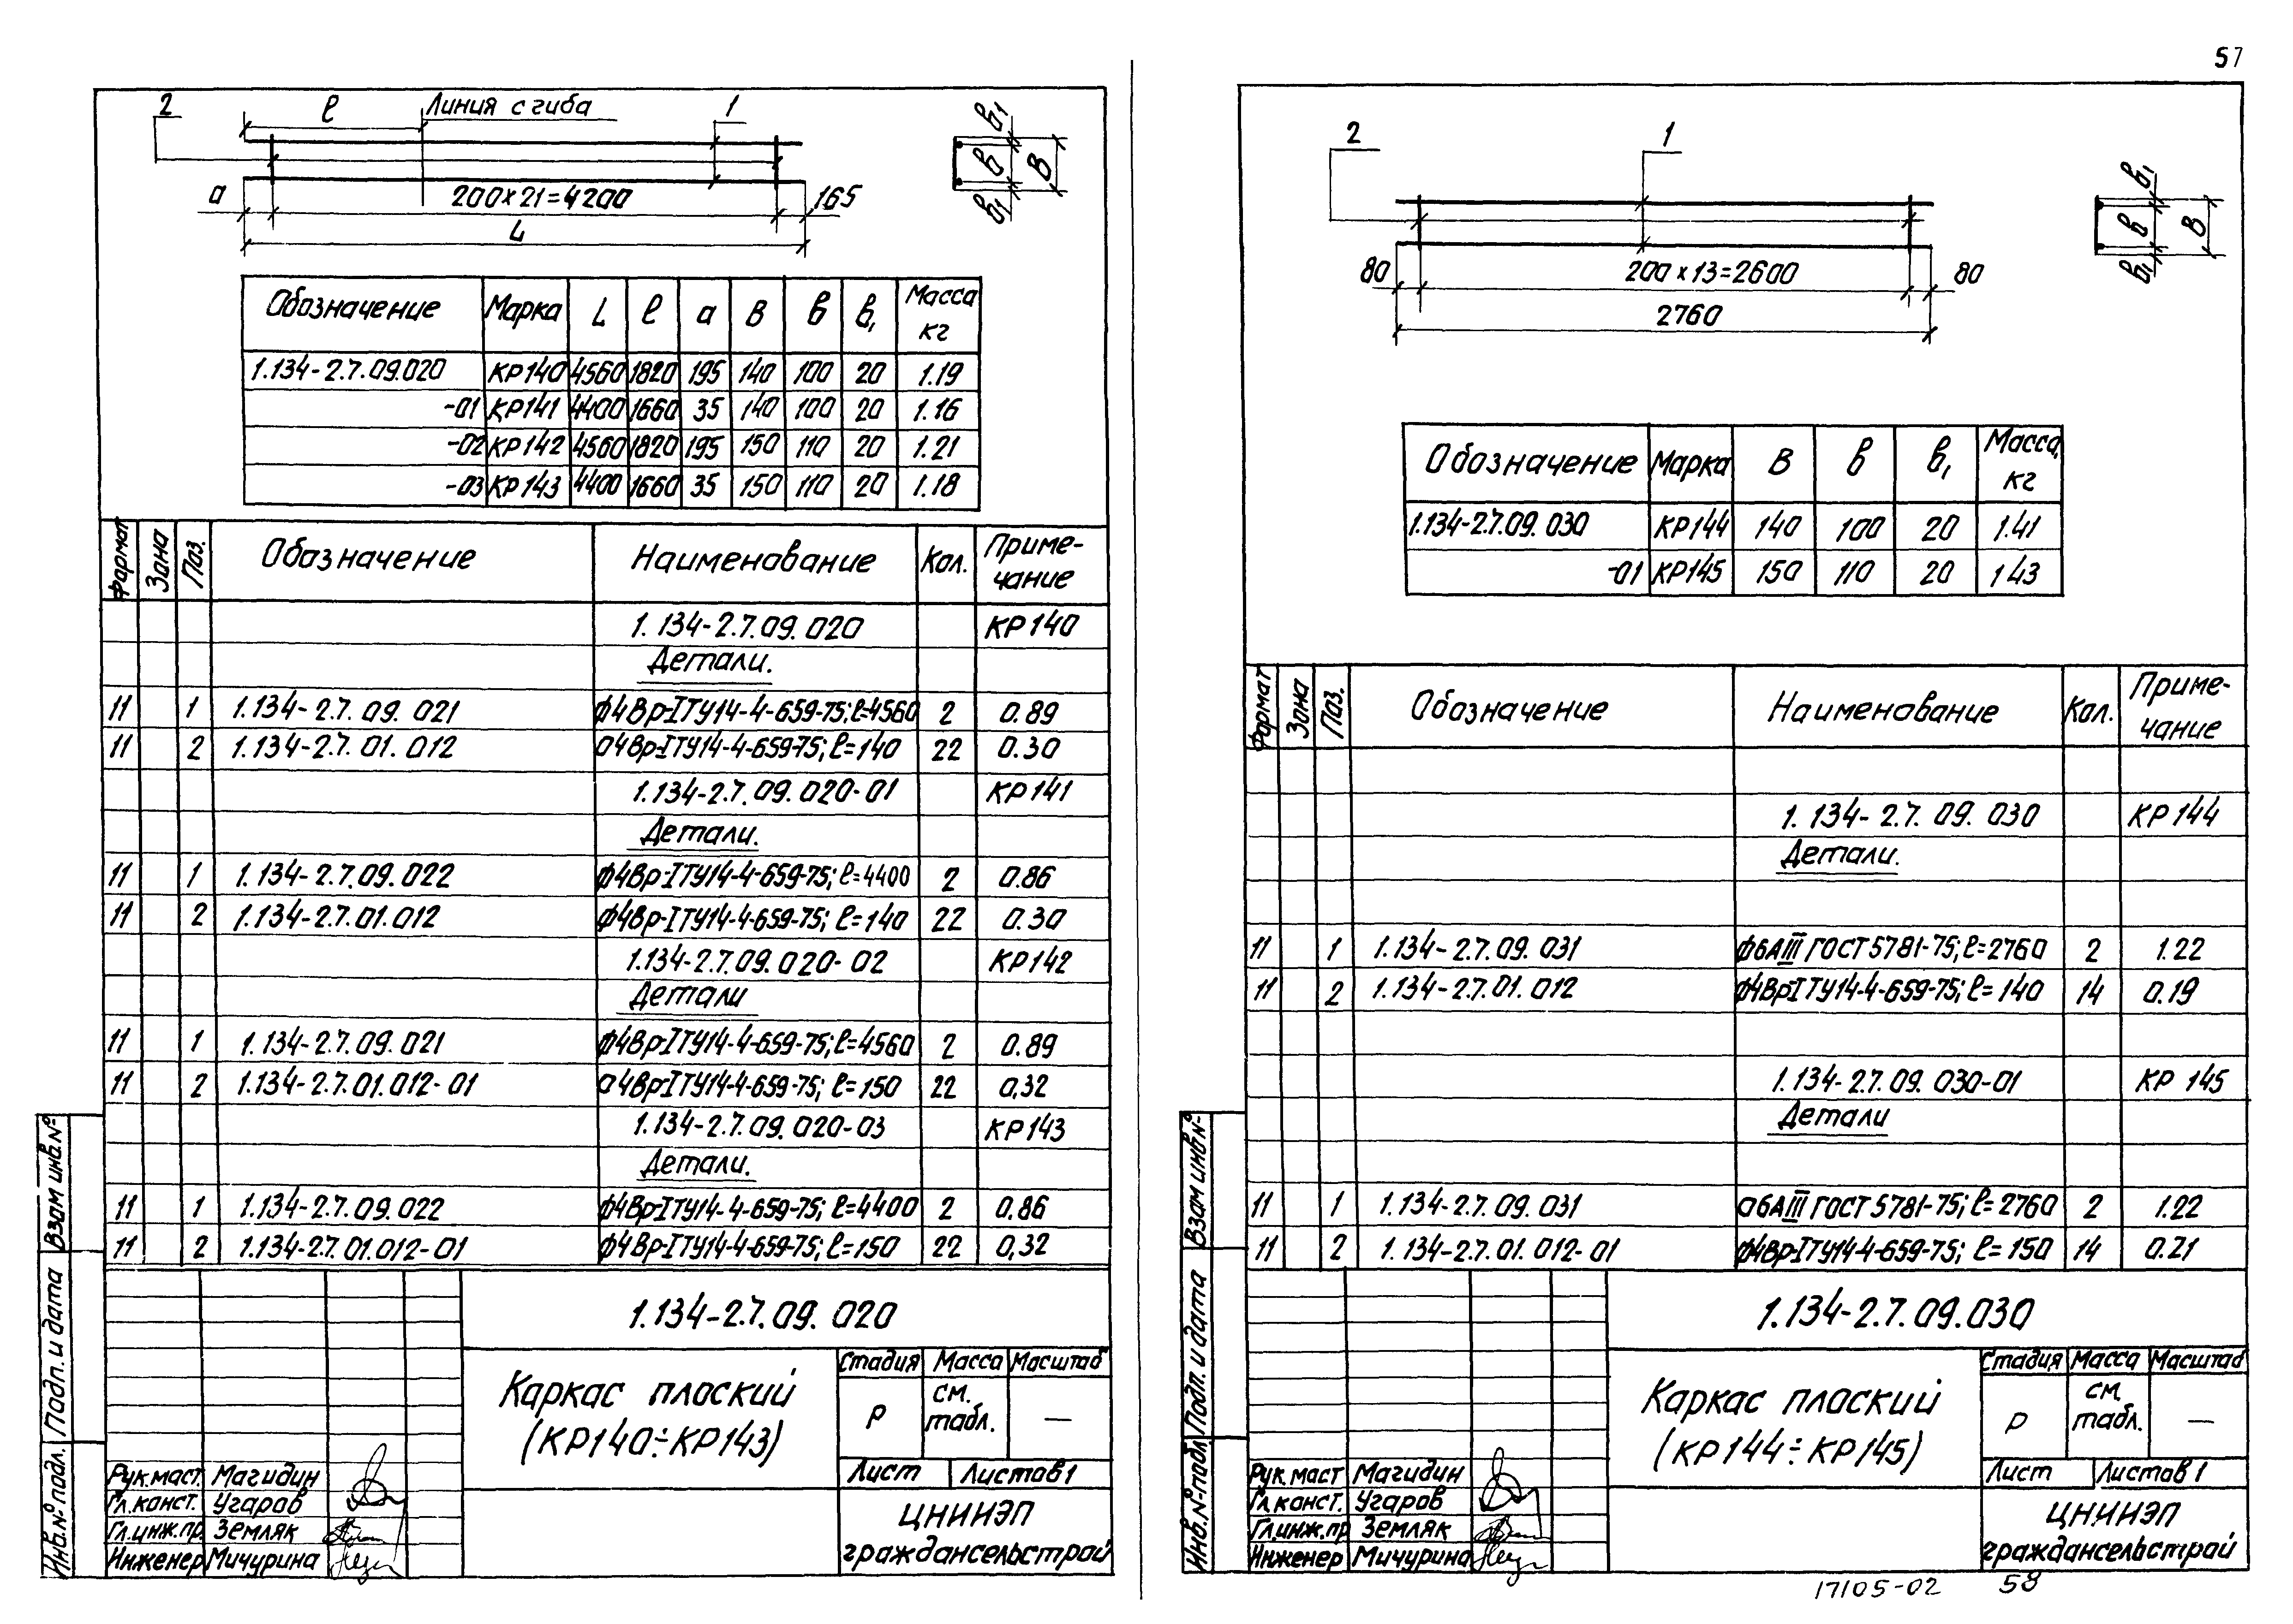 57
2
ℓ
Линия сгиба
1
в₁
в
В
в₁
а
200×21=4200
165
L
Обозначение Марка L ℓ а В в в₁ Масса кг
1.134-2.7.09.020 КР140 4560 1820 195 140 100 20 1.19
-01 КР141 4400 1660 35 140 100 20 1.16
-02 КР142 4560 1820 195 150 110 20 1.21
-03 КР143 4400 1660 35 150 110 20 1.18
Формат Зона Поз. Обозначение Наименование Кол. Приме-
чание
1.134-2.7.09.020 КР140
Детали.
11 1 1.134-2.7.09.021 ф4Вр-I ТУ14-4-659-75; ℓ=4560 2 0.89
11 2 1.134-2.7.01.012 ф4Вр-I ТУ14-4-659-75; ℓ=140 22 0.30
1.134-2.7.09.020-01 КР141
Детали.
11 1 1.134-2.7.09.022 ф4Вр-I ТУ14-4-659-75; ℓ=4400 2 0.86
11 2 1.134-2.7.01.012 ф4Вр-I ТУ14-4-659-75; ℓ=140 22 0.30
1.134-2.7.09.020-02 КР142
Детали
11 1 1.134-2.7.09.021 ф4Вр-I ТУ14-4-659-75; ℓ=4560 2 0.89
11 2 1.134-2.7.01.012-01 ф4Вр-I ТУ14-4-659-75; ℓ=150 22 0,32
1.134-2.7.09.020-03 КР143
Детали.
11 1 1.134-2.7.09.022 ф4Вр-I ТУ14-4-659-75; ℓ=4400 2 0.86
11 2 1.134-2.7.01.012-01 ф4Вр-I ТУ14-4-659-75; ℓ=150 22 0,32
Взам инв.№
Подп. и дата
Инв.№ подл.
1.134-2.7.09.020
Каркас плоский
(КР140÷КР143)
Стадия Масса Масштаб
Р см. табл. —
Лист Листов 1
Рук.маст. Магидин
Гл.конст. Угаров
Гл.инж.пр. Земляк
Инженер Мичурина
ЦНИИЭП
граждансельстрой
2
1
в₁
в
В
в₁
80
200×13=2600
80
2760
Обозначение Марка В в в₁ Масса, кг
1.134-2.7.09.030 КР144 140 100 20 1.41
-01 КР145 150 110 20 1.43
Формат Зона Поз. Обозначение Наименование Кол. Приме-
чание
1.134-2.7.09.030 КР144
Детали.
11 1 1.134-2.7.09.031 ф6АIII ГОСТ 5781-75; ℓ=2760 2 1.22
11 2 1.134-2.7.01.012 ф4Вр-I ТУ14-4-659-75; ℓ=140 14 0.19
1.134-2.7.09.030-01 КР 145
Детали
11 1 1.134-2.7.09.031 ф6АIII ГОСТ 5781-75; ℓ=2760 2 1.22
11 2 1.134-2.7.01.012-01 ф4Вр-I ТУ14-4-659-75; ℓ=150 14 0.21
Взам инв.№
Подп. и дата
Инв.№ подл
1.134-2.7.09.030
Каркас плоский
(КР144÷КР145)
Стадия Масса Масштаб
Р см. табл. —
Лист Листов 1
Рук.маст Магидин
Гл.конст. Угаров
Гл.инж.пр Земляк
Инженер Мичурина
ЦНИИЭП
граждансельстрой
17105-02 58